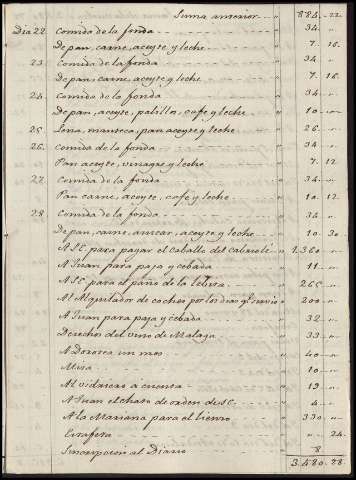 Suma anterior 884 22
Dia 22 Comida de la fonda 34
De pan, carne, aceyte y leche 7 16
23 Comida de la fonda 34
De pan, carne, aceyte y leche 7 16
24 Comida de la fonda 34
De pan, aceyte, palillos, cafe y leche 10
25 Lena, manteca, pan aceyte y leche 26
26 Comida de la fonda 34
Pan aceyte, vinagre y leche 7 12
27 Comida de la fonda 34
Pan carne, aceyte, cafe y leche 10 12
28 Comida de la fonda 34
De pan, carne, azucar, aceyte y leche 10 30
A SE para pagar el caballo del cabriolé 1.360
A Juan para paja y cebada 11
A SE para el paño de la levita 265
Al Alquilador de coches por los dias qe. sirvio 200
A Juan para paja y cebada 32
Derechos del vino de Malaga 33
A Dozorca un mes 40
Misa 10
Al vidriero a cuenta 19
A Juan el chato de orden de SE. 4
A la Mariana para el lienzo 330
Estafeta 24
Suscripcion al Diario 8
3.480 28